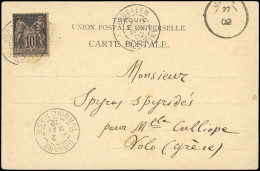 TURQUIE
UNION POSTALE UNIVERSELLE
CARTE POSTALE
10
02
Monsieur
Spyros Spyridés
pour Mlle Calliope
Volo (Grèce)